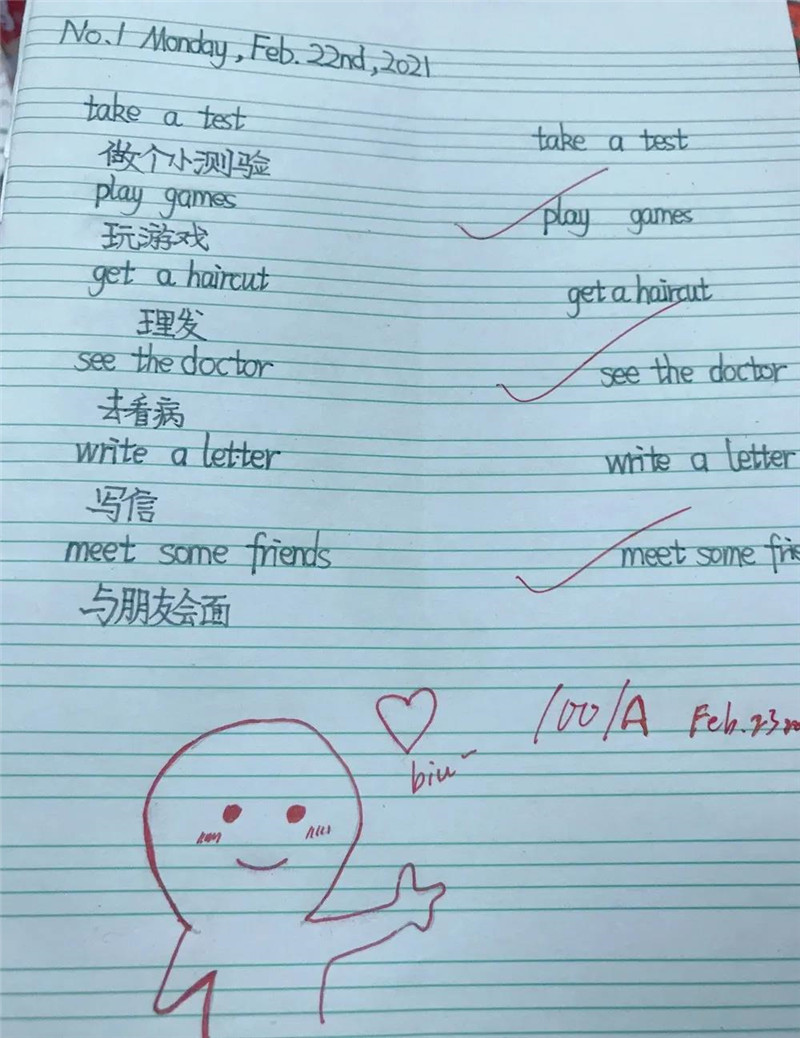 No.1 Monday, Feb. 22nd, 2021
take a test
做个小测验
take a test
play games
玩游戏
play games
get a haircut
理发
get a haircut
see the doctor
去看病
see the doctor
write a letter
写信
write a letter
meet some friends
与朋友会面
meet some
biu~
100/A Feb.23